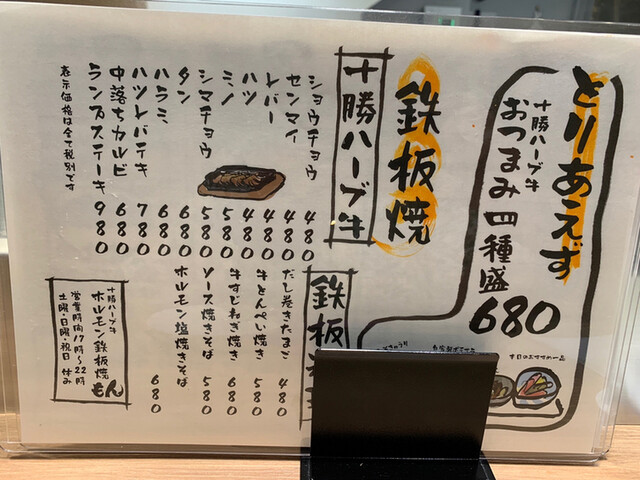 とりあえず
十勝ハーブ牛
おつまみ四種盛
680
本日のおすすめ一品
鉄板焼
十勝ハーブ牛
ショウチョウ 480
センマイ 480
レバー 480
ハツ 480
ミノ 580
シマチョウ 580
タン 680
ハラミ 680
ハツレバテキ 780
中落ちカルビ 680
ランプステーキ 980
表示価格は全て税別です
鉄板
だし巻きたまご 480
牛とんぺい焼き 580
牛すじねぎ焼き 680
ソース焼きそば 580
ホルモン塩焼きそば 680
十勝ハーブ牛
ホルモン鉄板焼 もん
営業時間17時〜22時
土曜・日曜・祝日 休み